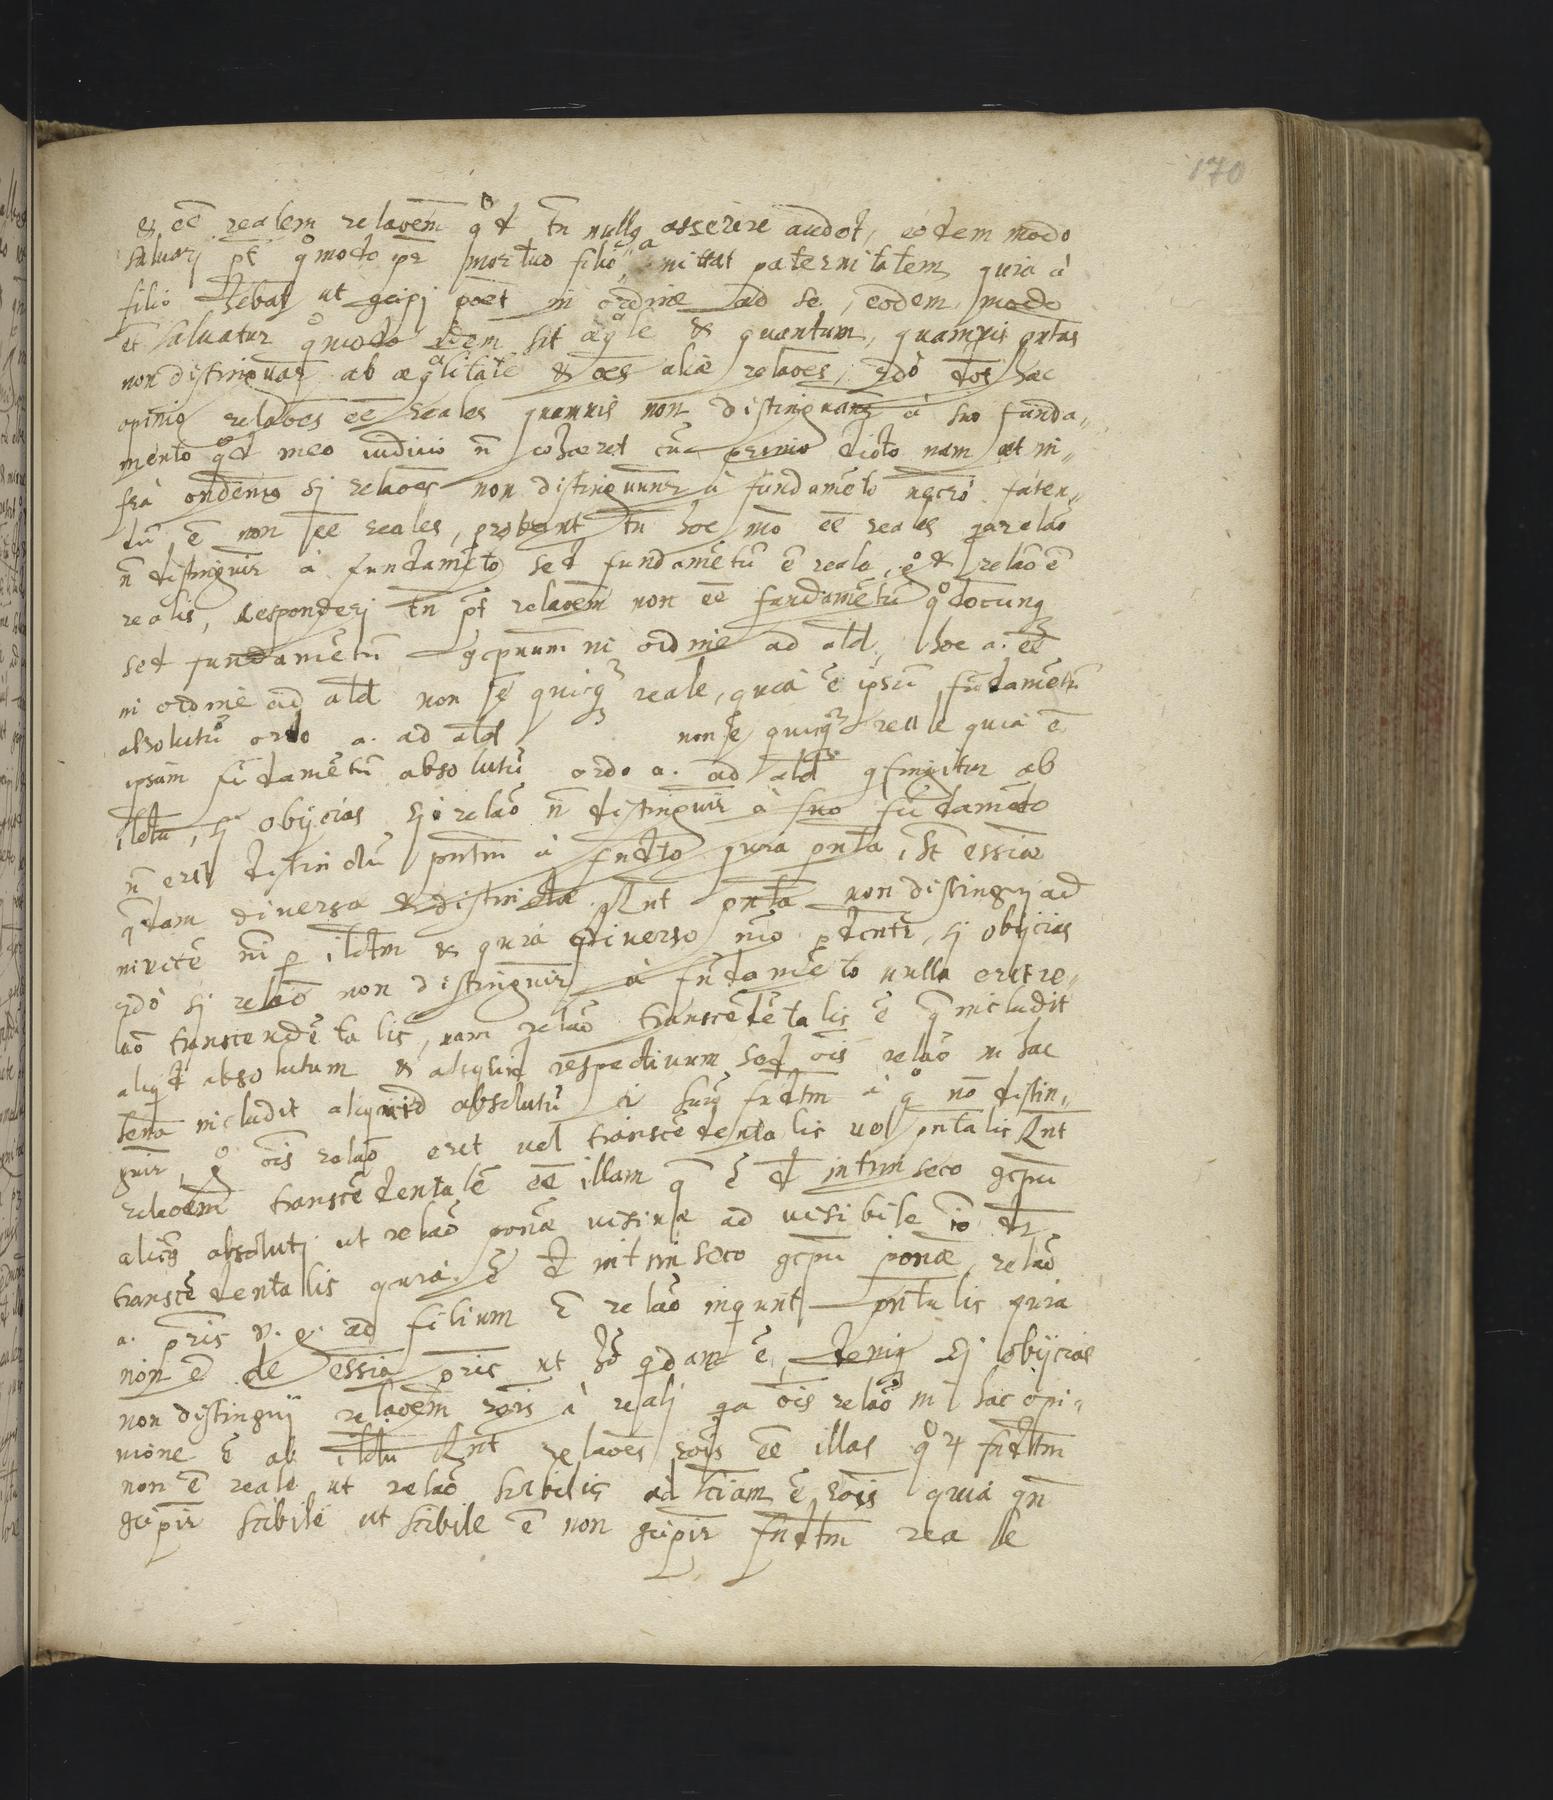 170
& eē realem relaoēm qd tn̄ nullq asserere audet, eodem modo
saluari pt̄ qmodo pr̄ mortuo filio amittat paternitatem quia à
filio hēbat ut gcipi poēt in ordine ad se, eodem modo
et saluatur qmodo idem sit aeqle & quantum, quamvis
non distinguar̄ ab aeqlitate & oēs aliae relaoēs, 2dò haec
opinio relaoēs eē reales quamvis non distinguanr̄ à suo funda„
mento qd meo iudicio n̄ cohaeret cū primo dicto nam ut in„
frà ondemq si relaoēs non distinguunr̄ à fundamēto necriò faten„
dū ē non eē reales, probant tn̄ hoc mō eē reales qa relaō
n̄ distinguir̄ à fundamēto sed fundamētū ē reale, & relaō ē
realis, Responderi tn̄ pt̄ relaoēm non eē fundamētū qdocunq
sed fundamētū gcpnum in ordine ad ald, hoc a. eē
in ordine ad ald non ē quicq reale, quia ē ipsū fūdamētū
absolutū ordo a. ad ald non ē quicq reale quia ē
ipsum fūdamētū absolutū ordo a. ad ald gfingitur ab
illtu, si obijcias si relaō n̄ distinguir̄ à suo fūdamēto
n̄ erit distinctū pntm̄ à fndto quia pnta st̄ essiae
qdam diversae & distinctae Rnt pnta non distingui ad
invicē nī p illtm & quia diverso mō , si obijcias
2dò si relaō non distinguir̄ à fndamēto nulla erit re„
laō transcendētalis, nam relaō transcēdētalis ē q includit
aliqd absolutum & aliquid respectivum sed oīs relaō in hac
includit aliquid absolutū i suū fndtm à q nō distin„
guir, g oīs relaō erit vel transcēdentalis vel pntalis Rnt
relaoēm transcēdentalē eē illam q ē d intrinseco gcpu
alicq absoluti ut relaō ponae visivae ad visibile io dr̄
transcēdentalis quia ē d intrinseco gcpu ponae, relaō
a. pris v. g. ad filium ē relaō inquunt pntalis quia
non ē de essia pris ut hō qdam ē, deniq si obijcias
non distingui relaoēm rōis à reali qa oīs relaō in hac opi„
nione ē ab illtu Rnt relaoēs rōis eē illas qr fndtm
non ē reale ut relaō scibilis ad sciam ē rōis quia qn
gcipir scibile ut scibile ē non gcipir fndtm reale